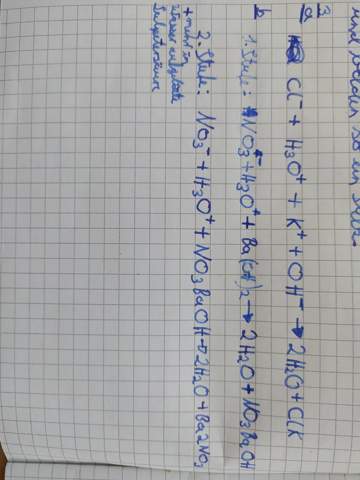 3
a Cl⁻ + H₃O⁺ + K⁺ + OH⁻ → 2H₂O + ClK
b 1. Stufe: NO₃⁻ + H₃O⁺ + Ba(OH)₂ → 2H₂O + NO₃BaOH
2. Stufe: NO₃⁻ + H₃O⁺ + NO₃BaOH → 2H₂O + Ba2NO₃
in
Wasser aufgelöste
Salpetersäure